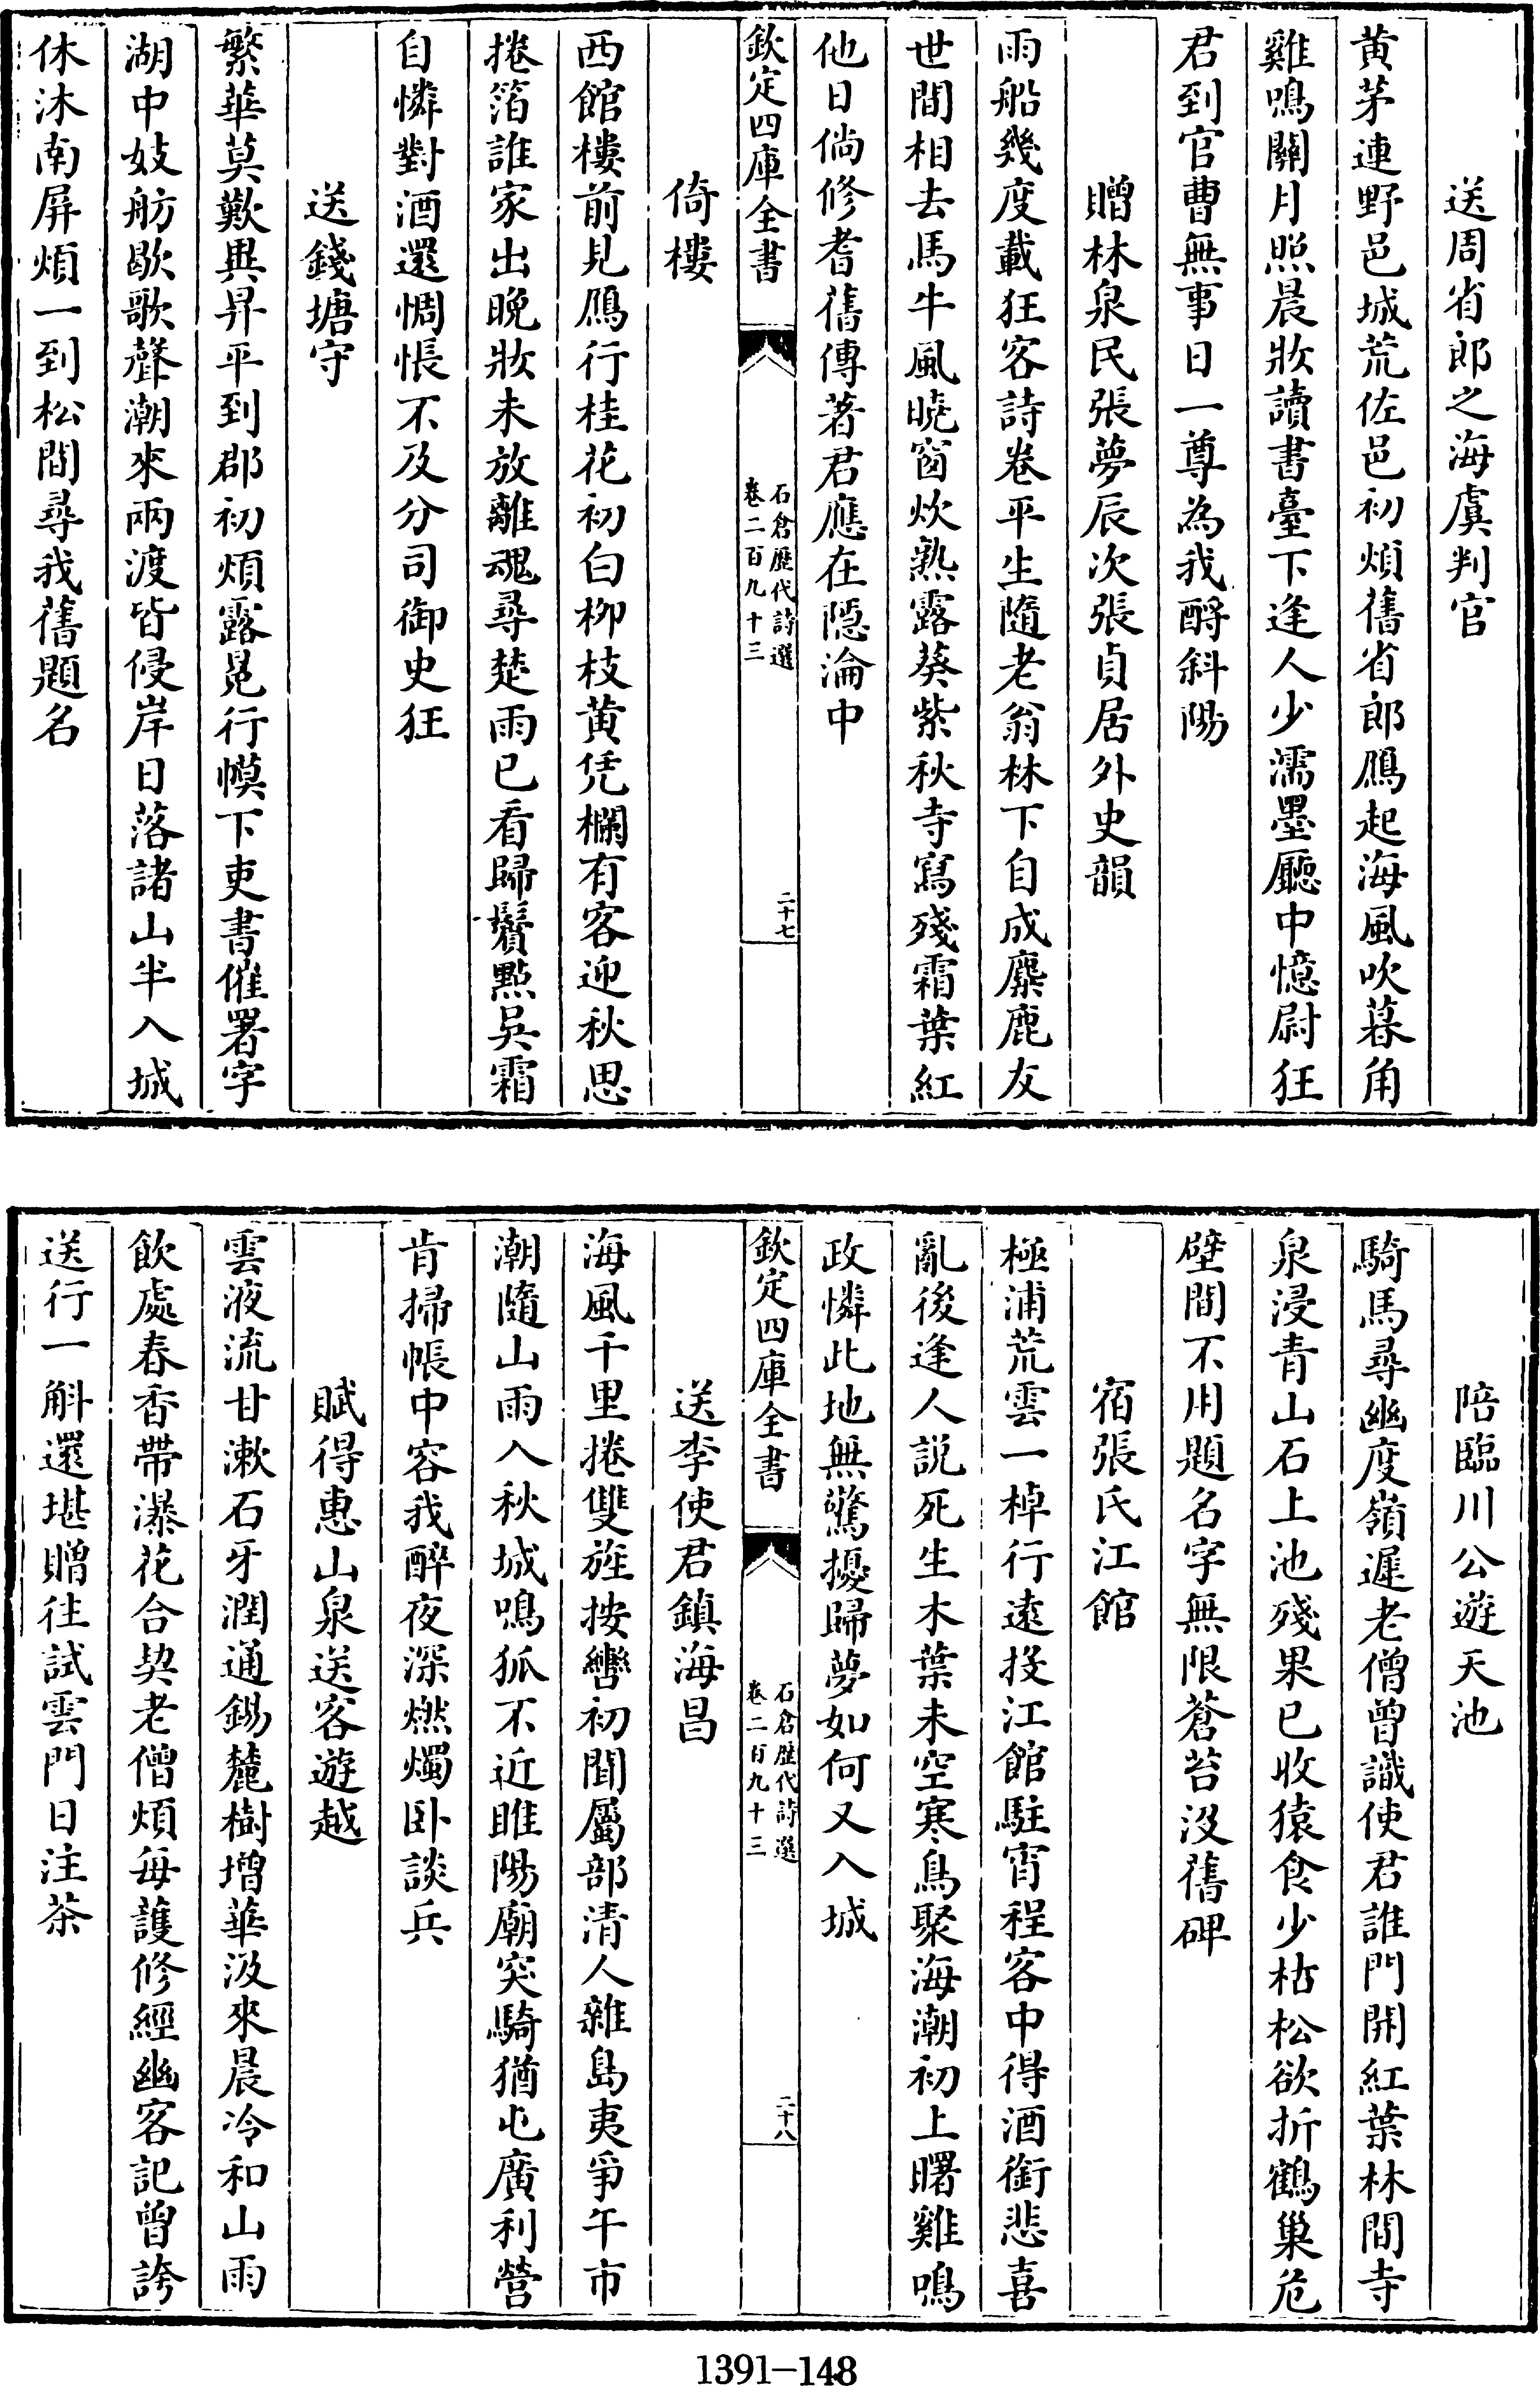 送周省郎之海虞判官
黄茅連野邑城荒佐邑初煩舊省郎鴈起海風吹暮角
雞鳴關月照晨妝讀書臺下逢人少濡墨廳中憶尉狂
君到官曹無事日一尊為我酹斜陽
贈林泉民張夢辰次張貞居外史韻
雨船幾度載狂客詩卷平生隨老翁林下自成麋鹿友
世間相去馬牛風曉窗炊熟露葵紫秋寺寫殘霜葉紅
他日倘修耆舊傳著君應在隱淪中
欽定四庫全書
石倉歴代詩選
卷二百九十三
二十七
倚樓
西館樓前見鴈行桂花初白柳枝黄凭欄有客迎秋思
捲箔誰家出晚妝未放離魂尋楚雨已看歸鬢點吳霜
自憐對酒還惆悵不及分司御史狂
送錢塘守
繁華莫歎異昇平到郡初煩露冕行幙下吏書催署字
湖中妓舫歇歌聲潮來兩渡皆侵岸日落諸山半入城
休沐南屏煩一到松間尋我舊題名
陪臨川公遊天池
騎馬尋幽度嶺遲老僧曾識使君誰門開紅葉林間寺
泉浸青山石上池殘果已收猿食少枯松欲折鶴巢危
壁間不用題名字無限蒼苔沒舊碑
宿張氏江館
極浦荒雲一棹行遠投江館駐宵程客中得酒銜悲喜
亂後逢人説死生木葉未空寒鳥聚海潮初上曙雞鳴
政憐此地無驚擾歸夢如何又入城
欽定四庫全書
石倉歴代詩選
卷二百九十三
二十八
送李使君鎮海昌
海風千里捲雙旌按轡初聞屬部清人雜島夷爭午市
潮隨山雨入秋城鳴狐不近睢陽廟突騎猶屯廣利營
肯掃帳中容我醉夜深燃燭卧談兵
賦得惠山泉送客遊越
雲液流甘漱石牙潤通錫麓樹增華汲來晨冷和山雨
飲處春香帶瀑花合契老僧煩每護修經幽客記曾誇
送行一斛還堪贈往試雲門日注茶
1391-148